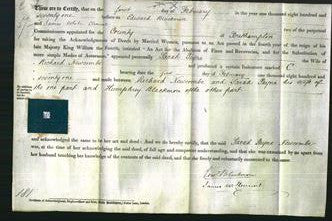 These are to Certify, that on first day of February in the year one thousand eight hundred
and seventy one before us Edward Blackmore
and James two of the perpetual
Commissioners appointed for the County of Southampton
for taking the Acknowledgments of Deeds by Married Women, pursuant to an Act passed in the fourth year of the reign of his
late Majesty King William the Fourth, intituled "An Act for the Abolition of Fines and Recoveries, and for the Substitution of
more simple Modes of Assurance," appeared personally Sarah Payne the Wife of
Richard Newcombe and produced a certain Indenture marked C
bearing date the day of February one thousand eight hundred and
seventy one and made between Richard Newcombe and Sarah Payne his wife of
the one part and Humphrey Blackmore of the other part
and acknowledged the same to be her act and deed: And we do hereby certify, that the said Sarah Payne Newcombe
was, at the time of her acknowledging the said deed, of full age and competent understanding, and that she was examined by us apart from
her husband touching her knowledge of the contents of the said deed, and that she freely and voluntarily consented to the same
Edw Blackmore
James